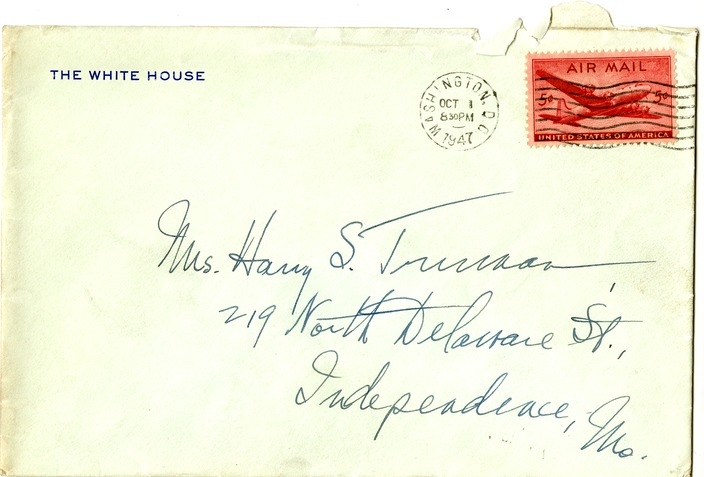 THE WHITE HOUSE
WASHINGTON, D.C.
OCT 1
830PM
1947
AIR MAIL
5¢ 5¢
UNITED STATES OF AMERICA
Mrs. Harry S. Truman,
219 North Delaware St.,
Independence,
Mo.